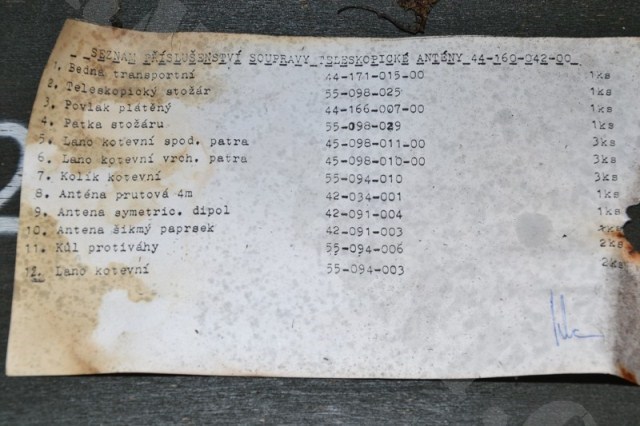 SEZNAM PŘÍSLUŠENSTVÍ SOUPRAVY TELESKOPICKÉ ANTÉNY 44-160-042-00
1. Bedna transportní 44-171-015-00 1ks
2. Teleskopický stožár 55-098-025 1ks
3. Povlak plátěný 44-166-007-00 1ks
4. Patka stožáru 55-098-029 1ks
5. Lano kotevní spod. patra 45-098-011-00 3ks
6. Lano kotevní vrch. patra 45-098-010-00 3ks
7. Kolík kotevní 55-094-010 3ks
8. Anténa prutová 4m 42-034-001 1ks
9. Antena symetric. dipol 42-091-004 1ks
10. Antena šikmý paprsek 42-091-003 1ks
11. Kůl protiváhy 55-094-006 2ks
12. Lano kotevní 55-094-003 2ks